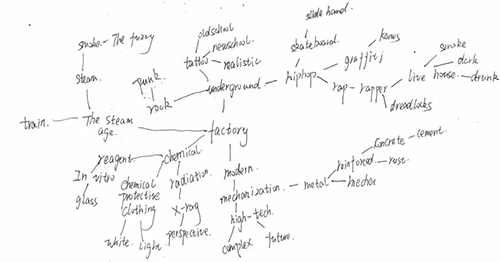 slide hand.
oldschool
smoke. The fuzzy
newschool
skateboard.
kaws
tattoo
realistic
graffiti
smoke
steam.
punk
underground
hiphop
live house.
dark
rap
rapper
drunk
rock
dreadlocks
train.
The steam age.
factory
concrete
cement.
reagent
chemical
modern.
reinforced
rust.
In vitro
chemical protective clothing
radiation.
mechanization
metal
glass
x-ray
high-tech.
white.
light.
perspective.
complex
future.